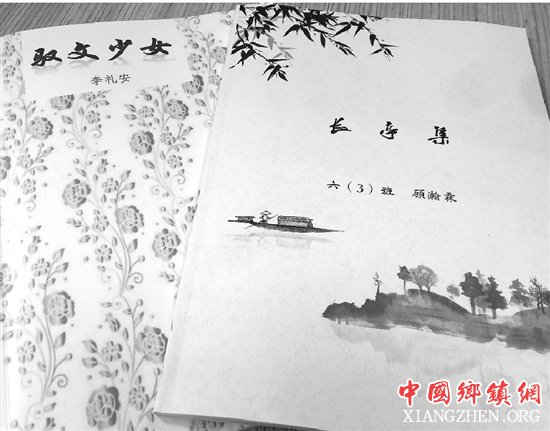 驭文少女
李礼安
长亭集
六（3）班 顾瀚霖
中國鄉鎮網
XIANGZHEN.ORG